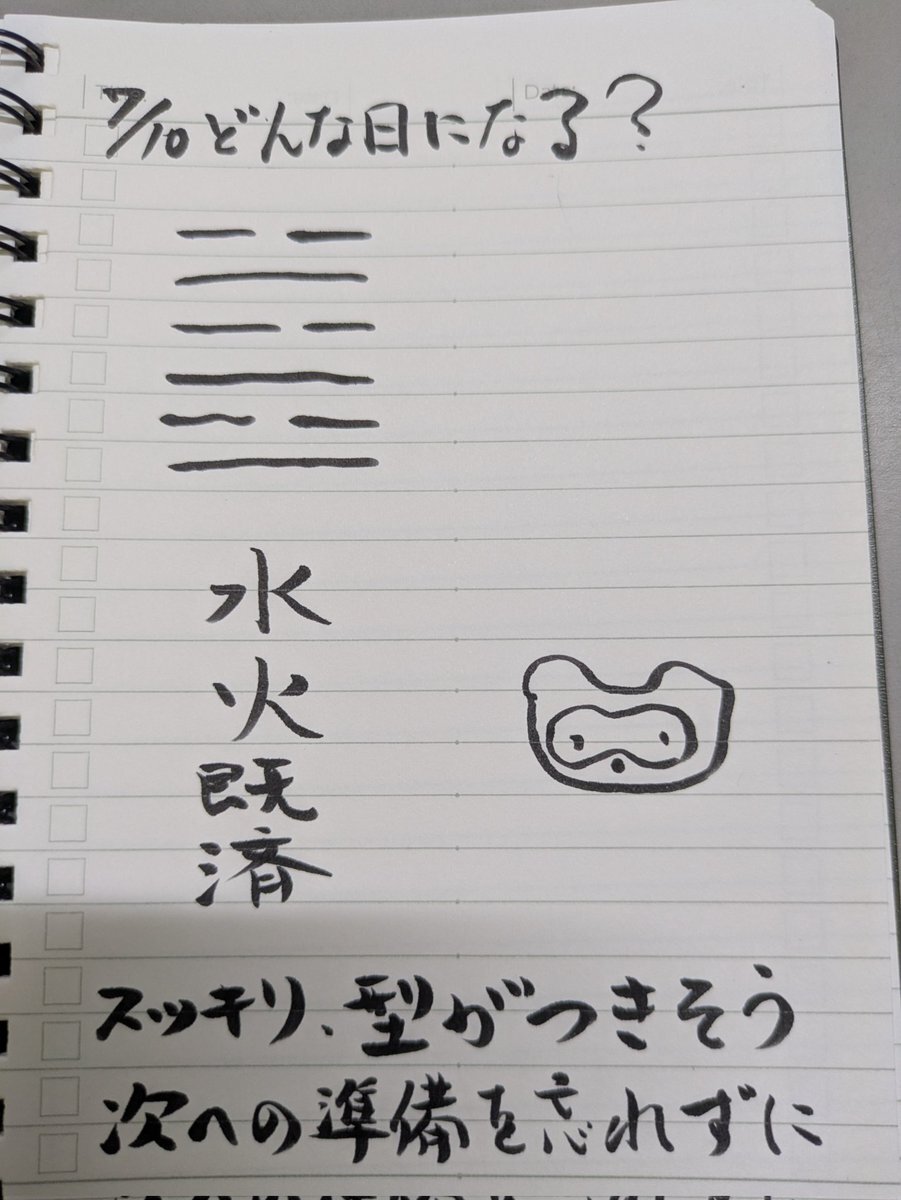 7/10どんな日になる?
水
火
既
済
スッキリ、型がつきそう
次への準備を忘れずに